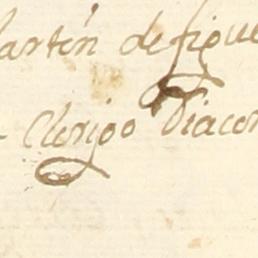 artín de figue
Clerigo Diacon